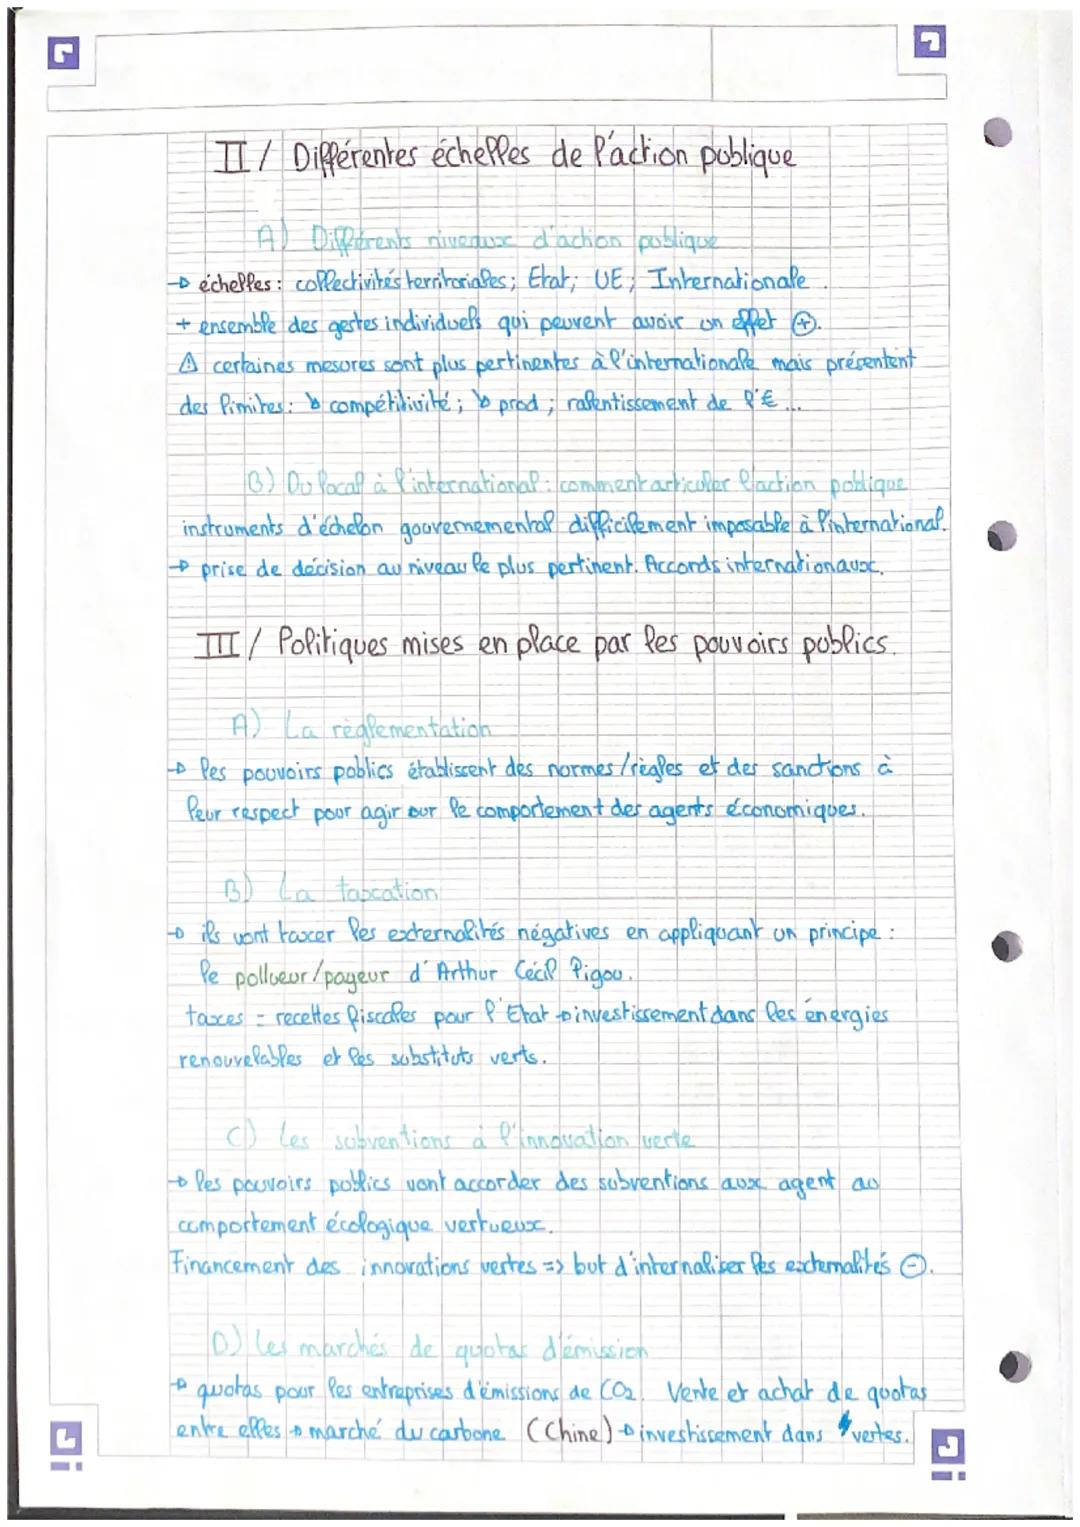 II/ Différentes échelles de l'action publique
A) Différents niveaux d'action publique
→ échelles : collectivités territoriales; Etat; UE; Internationale.
+ ensemble des gestes individuels qui peuvent avoir un effet ⊕.
⚠ certaines mesures sont plus pertinentes à l'internationale mais présentent
des limites : ↘ compétitivité ; ↘ prod ; ralentissement de l'€ ...
B) Du local à l'international : comment articuler l'action publique
instruments d'échelon gouvernemental difficilement imposable à l'international.
→ prise de décision au niveau le plus pertinent. Accords internationaux.
III/ Politiques mises en place par les pouvoirs publics.
A) La règlementation
→ les pouvoirs publics établissent des normes/règles et des sanctions à
leur respect pour agir sur le comportement des agents économiques.
B) La taxation
→ ils vont taxer les externalités négatives en appliquant un principe :
le pollueur/payeur d'Arthur Cécil Pigou.
taxes = recettes fiscales pour l'Etat → investissement dans les énergies
renouvelables et les substituts verts.
C) Les subventions à l'innovation verte
→ les pouvoirs publics vont accorder des subventions aux agent au
comportement écologique vertueux.
Financement des innovations vertes => but d'internaliser les externalités ⊖.
D) Les marchés de quotas d'émission
→ quotas pour les entreprises d'émissions de CO2. Vente et achat de quotas
entre elles → marché du carbone (Chine) → investissement dans ⚡ vertes.